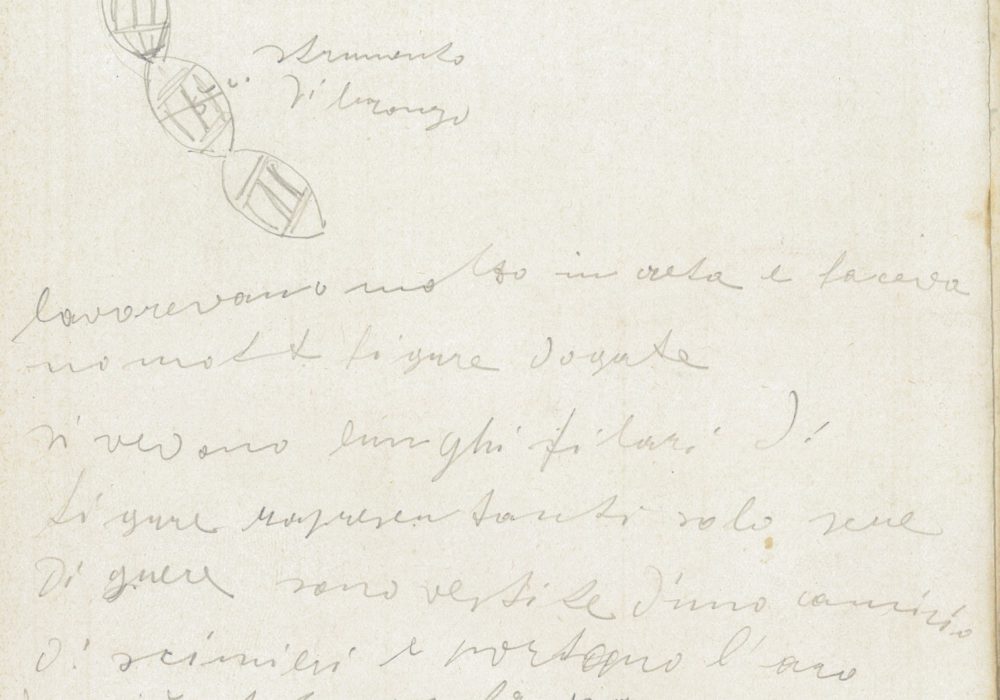 strumento
di bronzo
lavorevano molto in creta e faceva
no molte figure
si vedono lunghi filari di
figure rapresentanti solo sene
di guere sono vestite d'uno camicio
di scimieri e portano l'arco